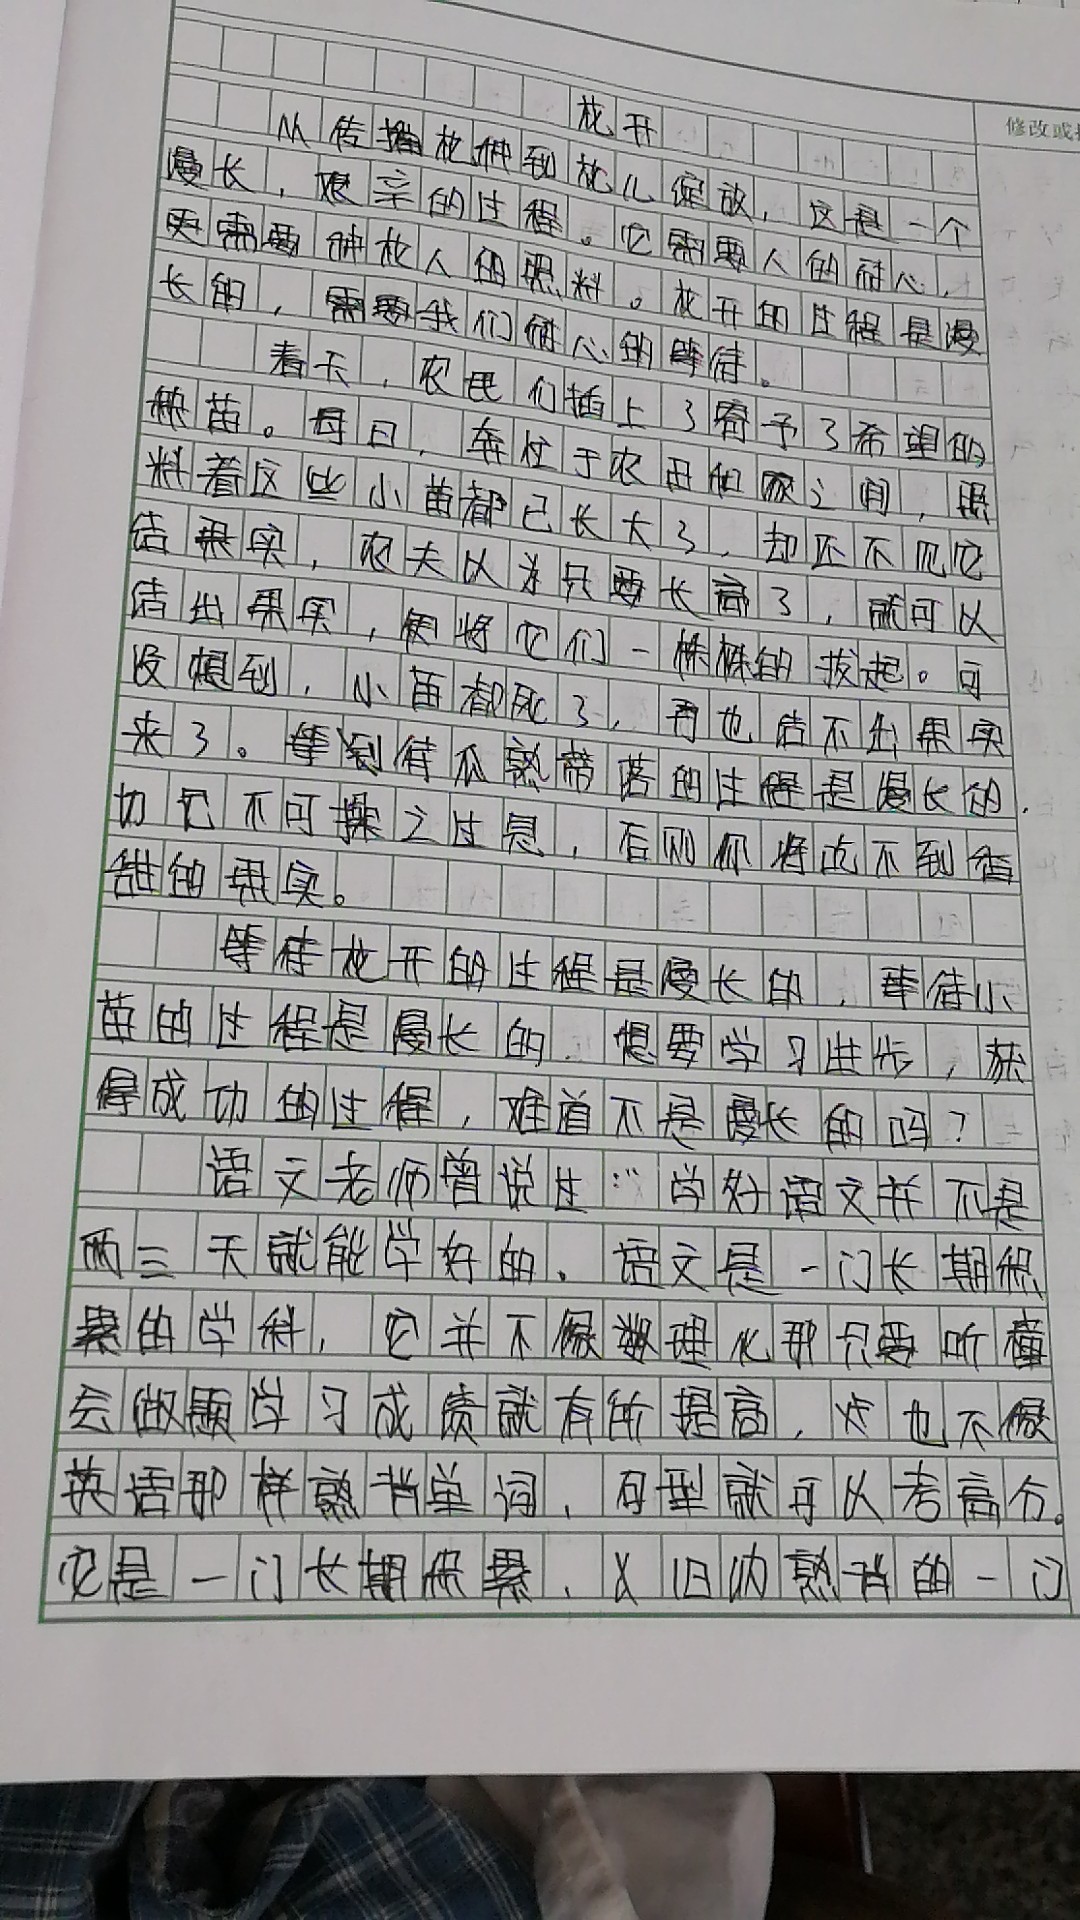 花开
修改或
从传播花种到花儿绽放，这是一个
漫长，艰辛的过程。它需要人的耐心，
更需要种花人的照料。花开的过程是漫
长的，需要我们耐心的等待。
春天，农民们插上了寄予了希望的
秧苗。每日，奔忙于农田和家之间，照
料着这些小苗都已长大了，却还不见它
结果实，农夫以为只要长高了，就可以
结出果实，便将它们一株株的拔起。可
没想到，小苗都死了，再也结不出果实
来了。等到待瓜熟蒂落的过程是漫长的，
切记不可操之过急，否则你将吃不到香
甜的果实。
等待花开的过程是漫长的，等待小
苗的过程是漫长的，想要学习进步，获
得成功的过程，难道不是漫长的吗？
语文老师曾说过："学好语文并不是
两三天就能学好的。语文是一门长期积
累的学科，它并不像数理化那只要听懂
会做题学习成绩就有所提高，它也不像
英语那样熟背单词，句型就可以考高分。
它是一门长期积累，又归纳熟背的一门